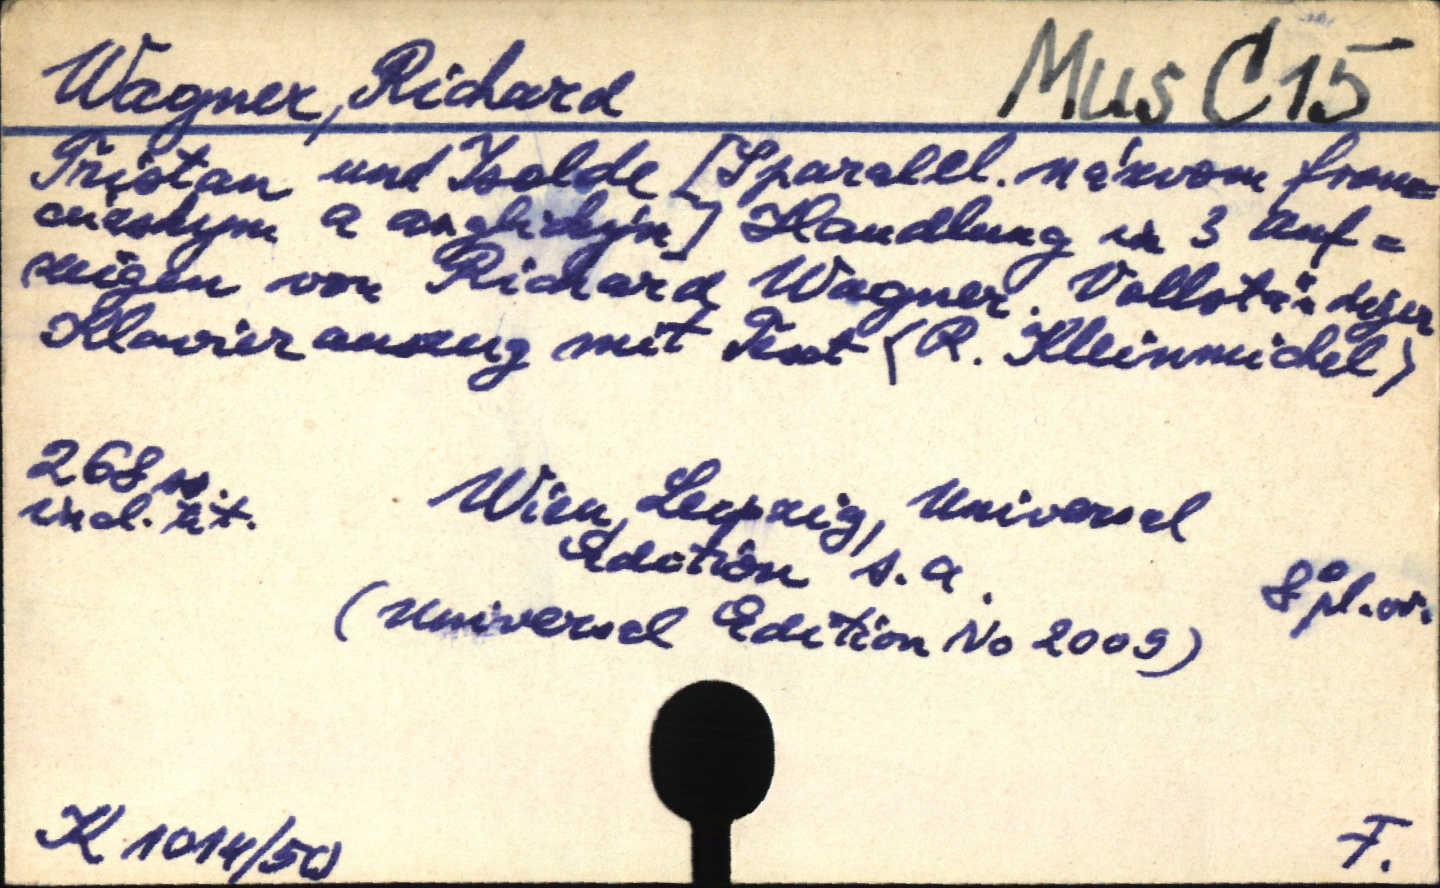 Wagner, Richard
Mus C 15
Tristan und Isolde [S parallel. názvom fran=
cúzskym a anglickým] Handlung in 3 Auf=
zügen von Richard Wagner. Vollständiger
Klavierauszug mit Text (R. Kleinmichel)
268 ss.
incl. tit.
Wien, Leipzig, Universal
Edition s.a.
8° pl. ov.
(Universal Edition No 2009)
K 1014/50
F.